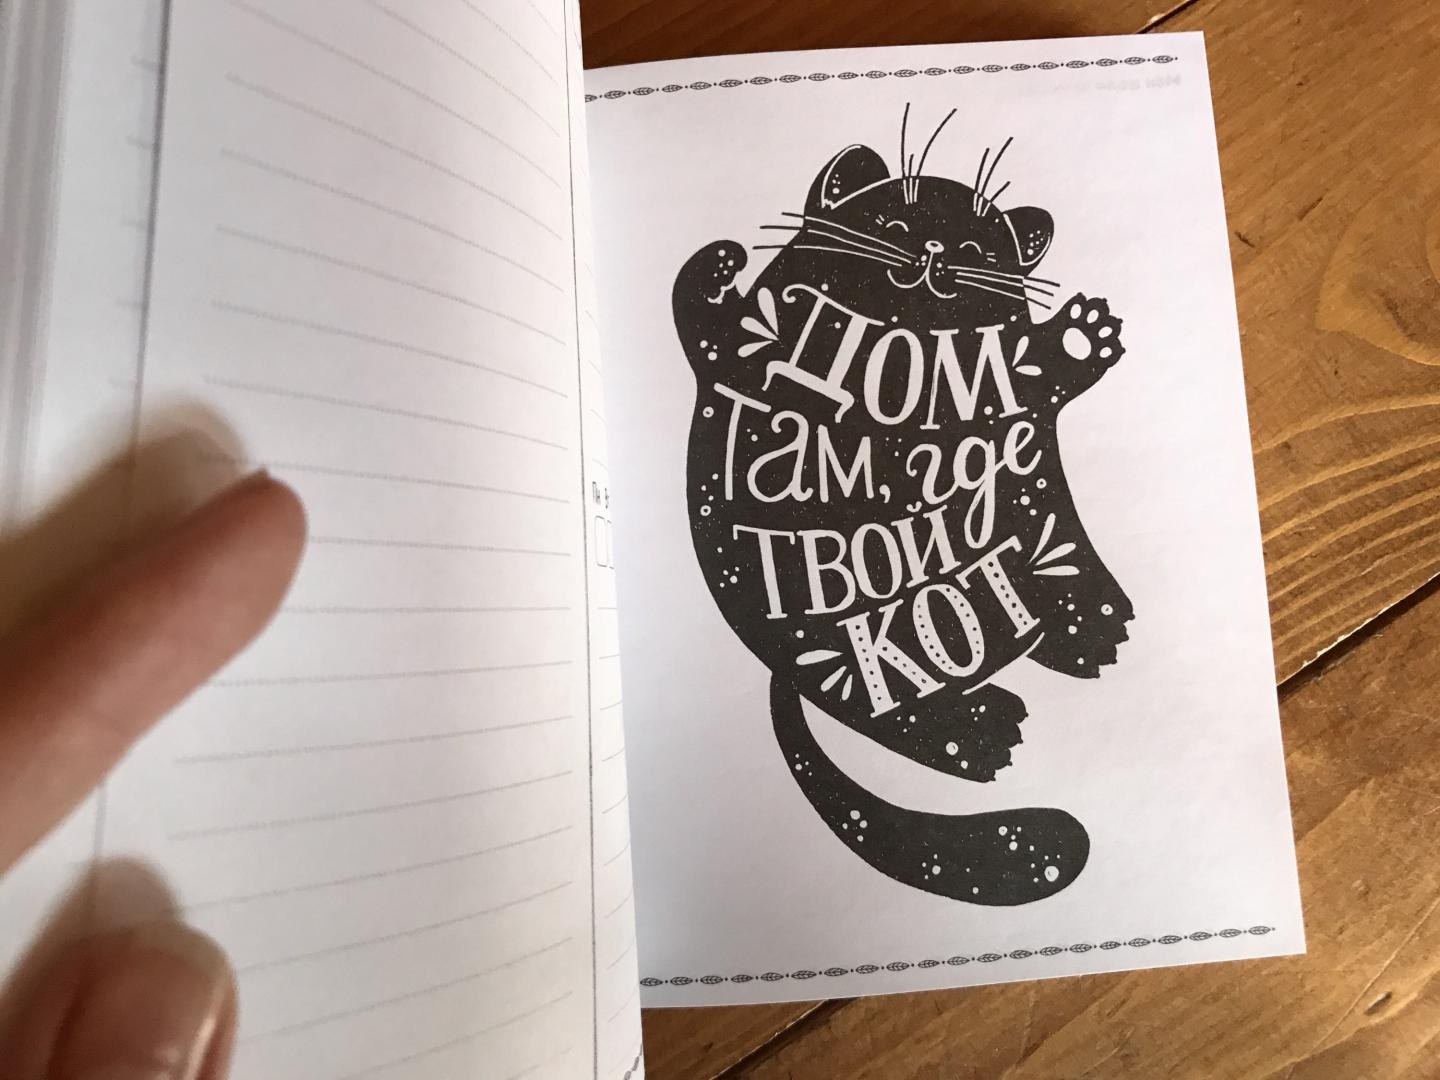 Дом
там, где
твой
кот
Пн В